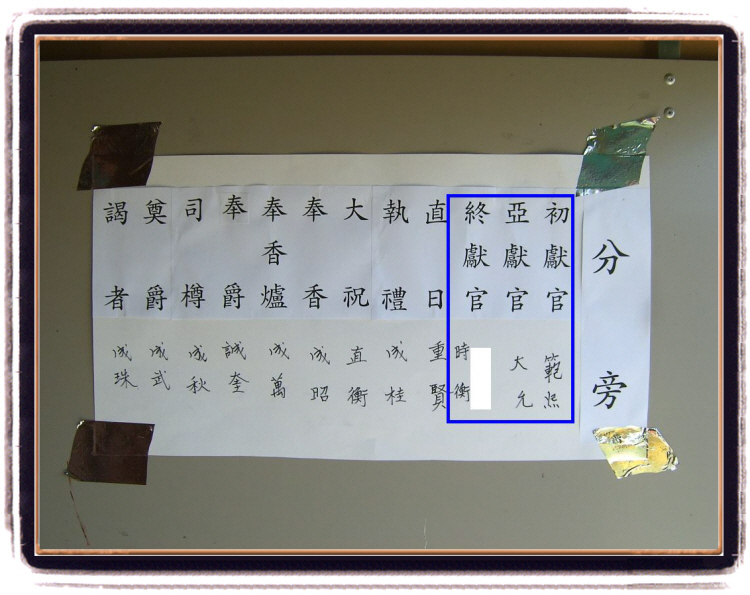 分旁
初獻官 範熙
亞獻官 大允
終獻官 時衡
直日 重賢
執禮 成桂
大祝 直衡
奉香 成昭
奉香爐 成萬
奉爵 誠奎
司樽 成秋
奠爵 成武
謁者 成珠